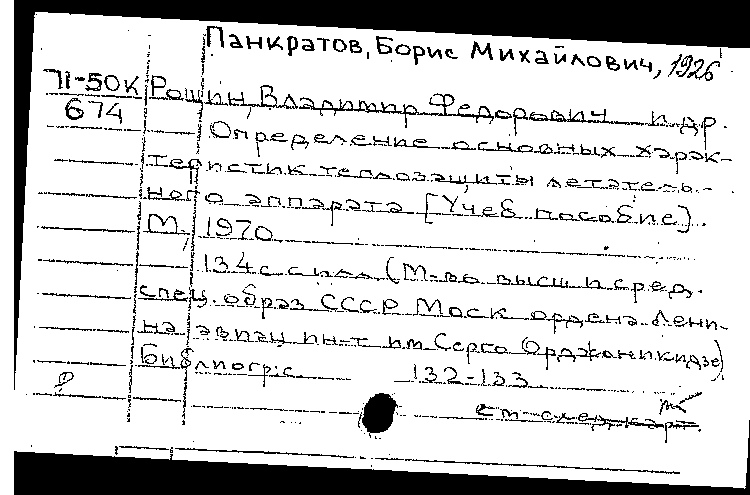 Панкратов, Борис Михайлович, 1926
71-50К Рощин, Владимир Федорович и др.
674
Определение основных харак-
теристик теплозащиты летатель-
ного аппарата [Учеб пособие].
М, 1970
134 с с илл (М-во высш и сред.
спец. образ СССР Моск ордена Лени-
на авиац ин-т им. Серго Орджоникидзе)
Библиогр: с. 132-133
см след карт.